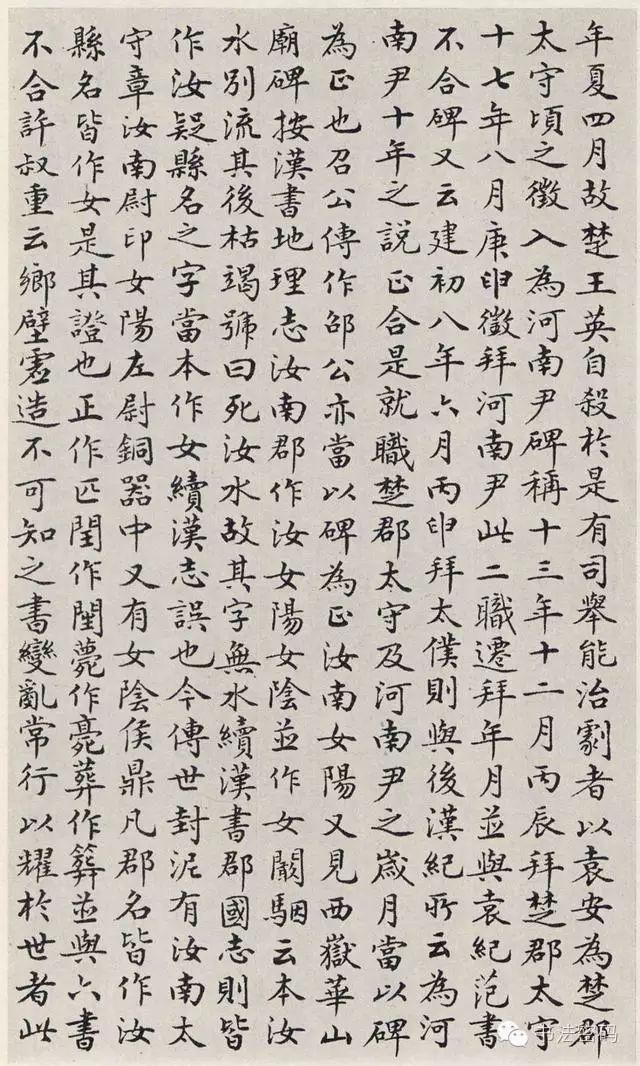 年夏四月故楚王英自殺於是有司舉能治劇者以袁安為楚郡
太守頃之徵入為河南尹碑稱十三年十二月丙辰拜楚郡太守
十七年八月庚申徵拜河南尹此二職遷拜年月並與袁紀范書
不合碑又云建初八年六月丙申拜太僕則與後漢紀所云為河
南尹十年之說正合是就職楚郡太守及河南尹之歲月當以碑
為正也召公傳作邵公亦當以碑為正汝南女陽又見西嶽華山
廟碑按漢書地理志汝南郡作汝女陽女陰並作女闞駰云本汝
水別流其後枯竭號曰死汝水故其字無水續漢書郡國志則皆
作汝疑縣名之字當本作女續漢志誤也今傳世封泥有汝南太
守章汝南尉印女陽左尉銅器中又有女陰侯鼎凡郡名皆作汝
縣名皆作女是其證也正作匹閏作閠薨作薧葬作葬並與六書
不合許叔重云鄉壁虛造不可知之書變亂常行以耀於世者此
书法密码